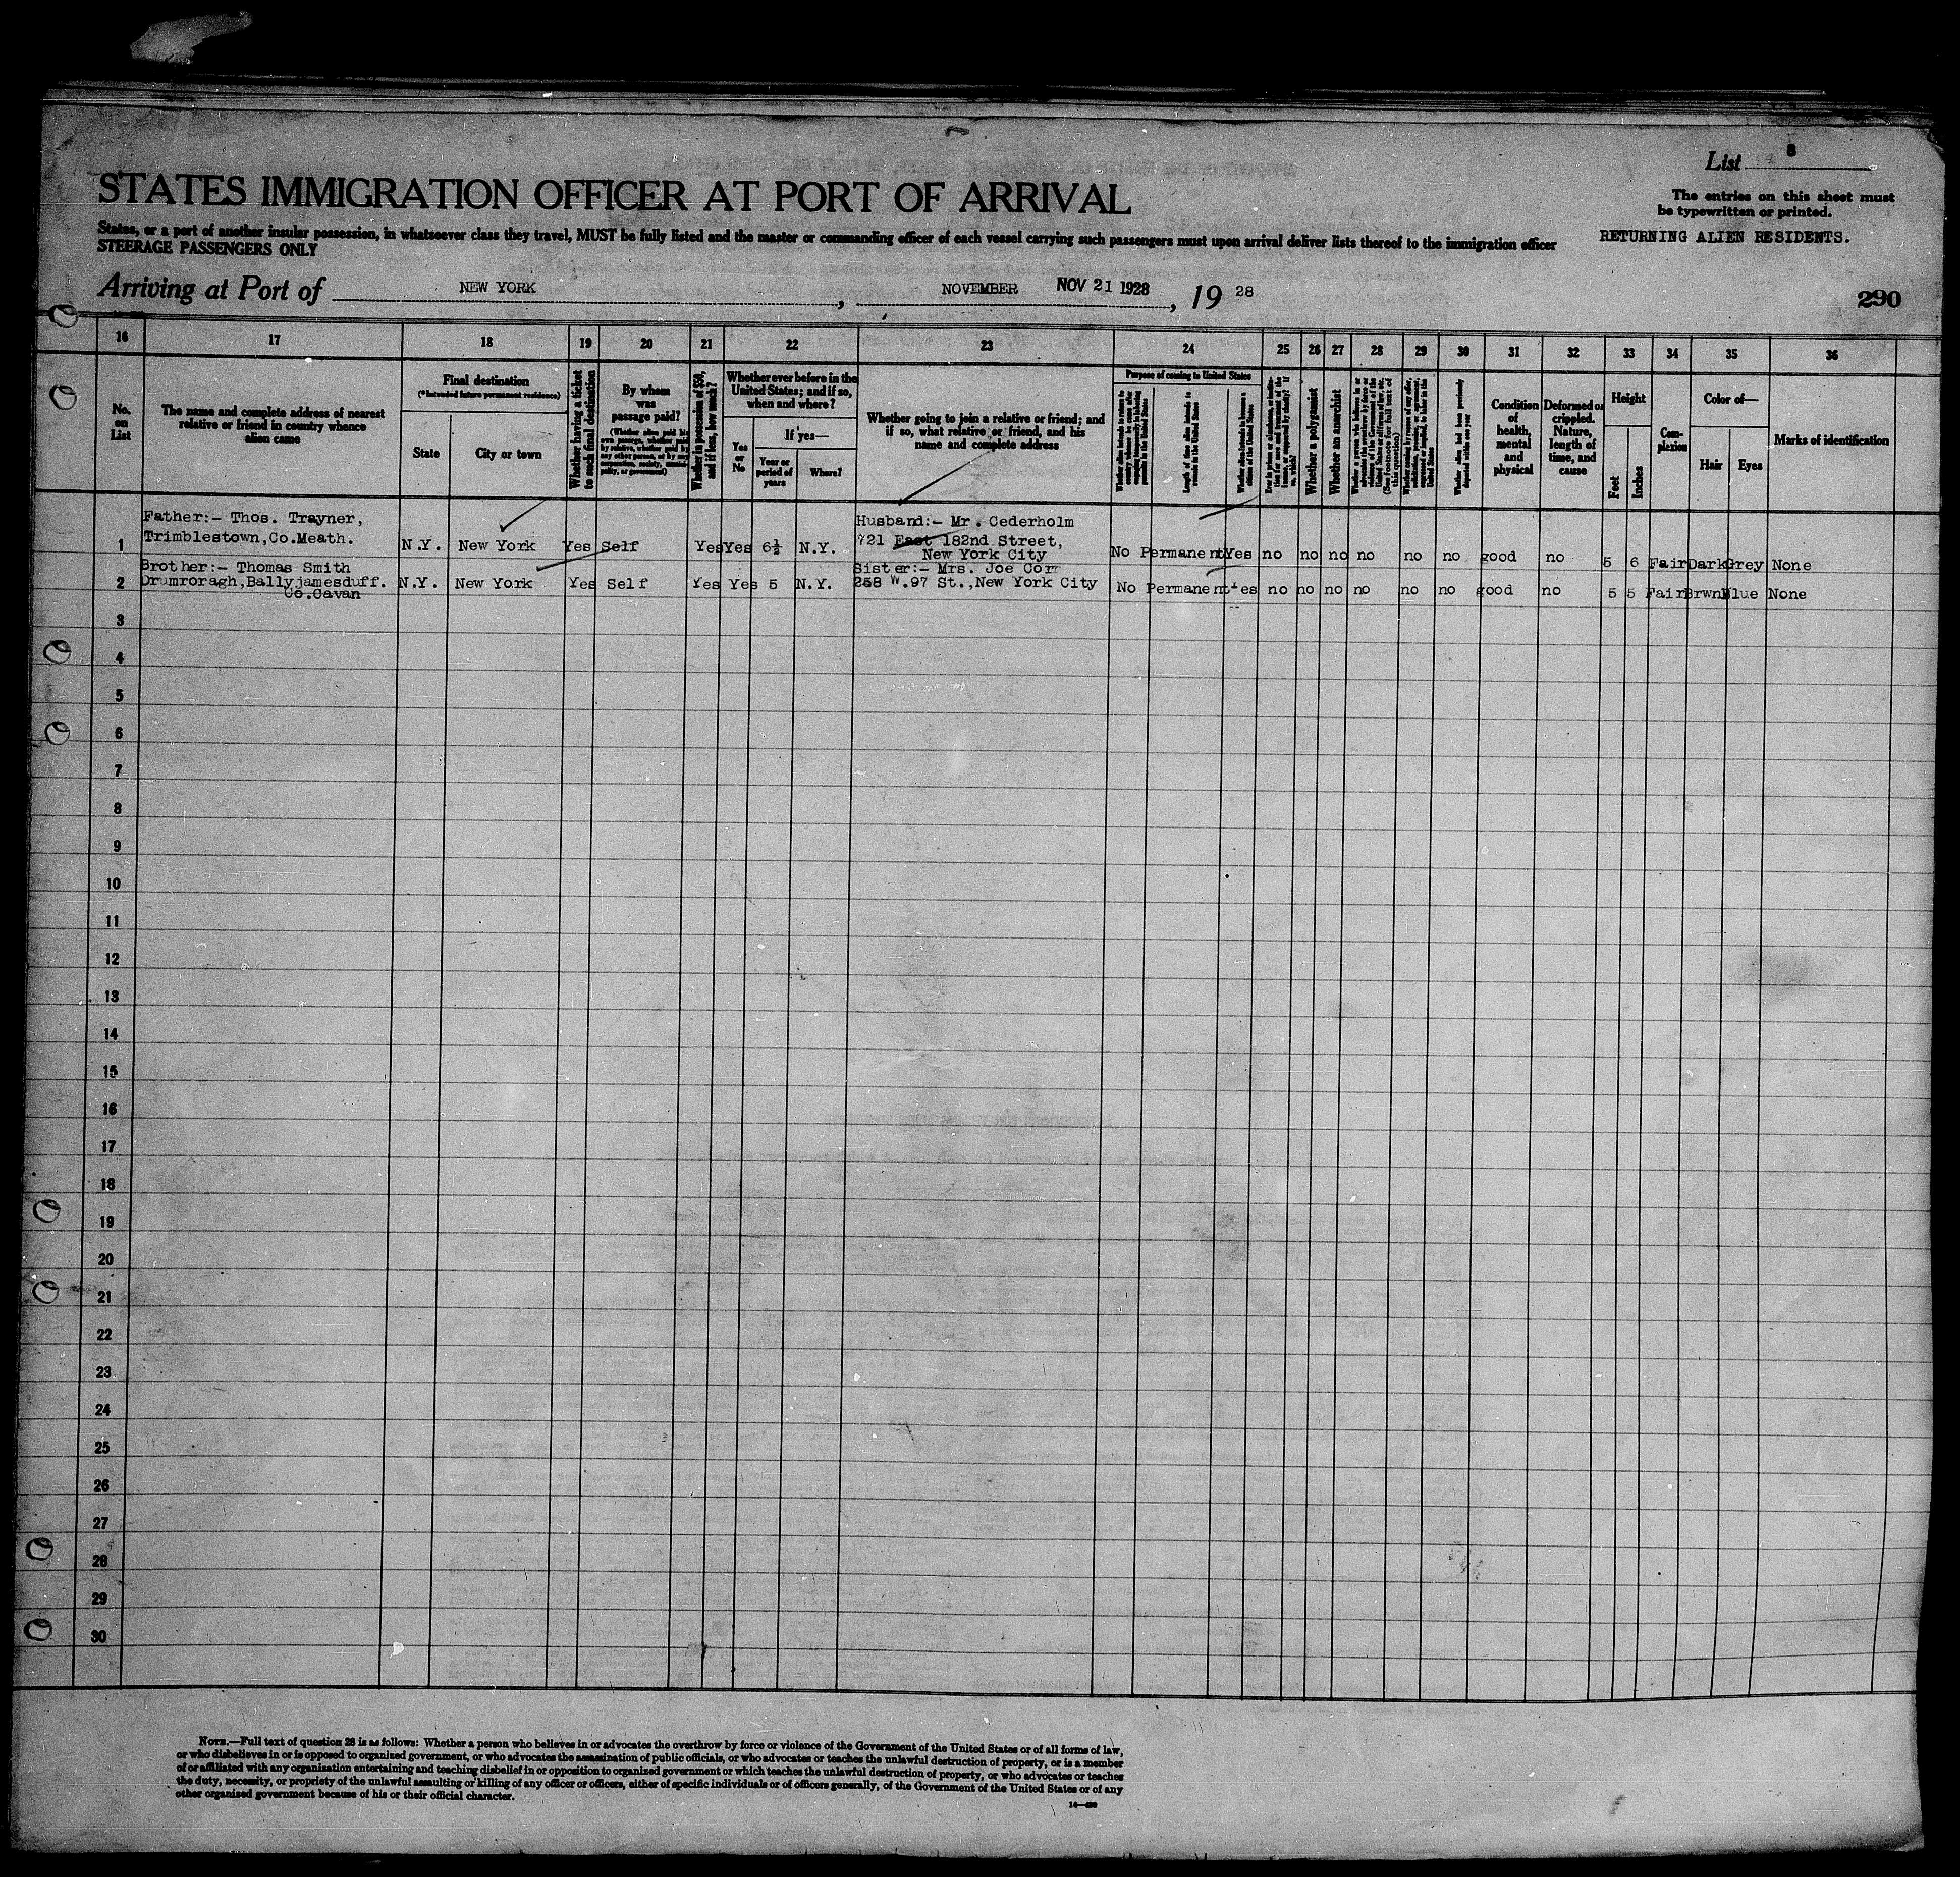 List 8
STATES IMMIGRATION OFFICER AT PORT OF ARRIVAL
The entries on this sheet must
be typewritten or printed.
States, or a port of another insular possession, in whatsoever class they travel, MUST be fully listed and the master or commanding officer of each vessel carrying such passengers must upon arrival deliver lists thereof to the immigration officer
STEERAGE PASSENGERS ONLY
RETURNING ALIEN RESIDENTS.
Arriving at Port of NEW YORK, NOVEMBER NOV 21 1928, 19 28
290
16 17 18 19 20 21 22 23 24 25 26 27 28 29 30 31 32 33 34 35 36
No.
on
List
The name and complete address of nearest
relative or friend in country whence
alien came
Final destination
(*Intended future permanent residence)
State
City or town
Whether having a ticket
to such final destination
By whom
was
passage paid?
Whether in possession of $50,
and if less, how much?
Whether ever before in the
United States; and if so,
when and where?
Yes
or
No
If yes—
Year or
period of
years
Where?
Whether going to join a relative or friend; and
if so, what relative or friend, and his
name and complete address
Purpose of coming to United States
Length of time alien intends to
remain in the United States
Whether a polygamist
Whether an anarchist
Whether alien had been previously
deported within one year
Condition
of
health,
mental
and
physical
Deformed or
crippled.
Nature,
length of
time, and
cause
Height
Feet
Inches
Com-
plexion
Color of—
Hair
Eyes
Marks of identification
Father:- Thos. Trayner,
Trimblestown,Co.Meath.
Husband:- Mr. Cederholm
721 East 182nd Street,
New York City
1 N.Y. New York Yes Self Yes Yes 6½ N.Y. No Permanent Yes no no no no no no good no 5 6 Fair Dark Grey None
Brother:- Thomas Smith
Drumroragh,Ballyjamesduff.
Co.Cavan
Sister:- Mrs. Joe Corr
258 W.97 St.,New York City
2 N.Y. New York Yes Self Yes Yes 5 N.Y. No Permanent Yes no no no no no no good no 5 5 Fair Brwn Blue None
3
4
5
6
7
8
9
10
11
12
13
14
15
16
17
18
19
20
21
22
23
24
25
26
27
28
29
30
NOTE.—Full text of question 28 is as follows: Whether a person who believes in or advocates the overthrow by force or violence of the Government of the United States or of all forms of law,
or who disbelieves in or is opposed to organized government, or who advocates the assassination of public officials, or who advocates or teaches the unlawful destruction of property, or is a member
of or affiliated with any organization entertaining and teaching disbelief in or opposition to organized government or which teaches the unlawful destruction of property, or who advocates or teaches
the duty, necessity, or propriety of the unlawful assaulting or killing of any officer or officers, either of specific individuals or of officers generally, of the Government of the United States or of any
other organized government because of his or their official character.